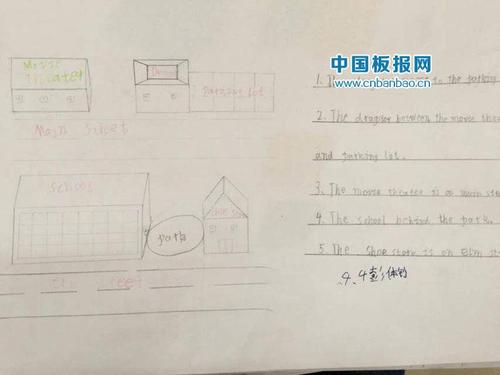 中国板报网
www.cnbanbao.cn
Movie
Theater
Drug
parking lot
Main Street
School
Shoe Store
park
reet
1. The to the parking
2. The drugstor between the movie thea
and parking lot.
3. The movie theater is on main stre
4. The school behind the park.
5. The shoe store is on Elm st
4.4